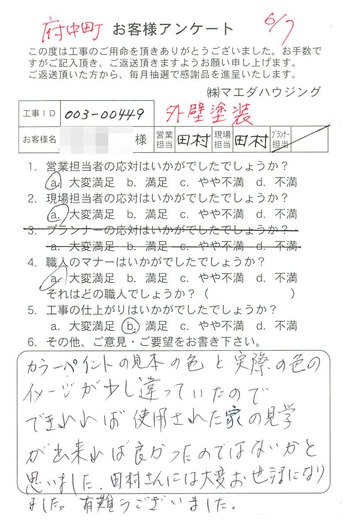 府中町 お客様アンケート 6/7
この度は工事のご用命を頂きありがとうございました。お手数で
すがご記入頂き、ご返送頂きますようお願い申し上げます。
ご返送頂いた方から、毎月抽選で感謝品を進呈いたします。
㈱マエダハウジング
工事ID 003-00449 外壁塗装
お客様名 様 営業担当 田村 現場担当 田村 プランナー担当
1. 営業担当者の応対はいかがでしたでしょうか?
a. 大変満足 b. 満足 c. やや不満 d. 不満
2. 現場担当者の応対はいかがでしたでしょうか?
a. 大変満足 b. 満足 c. やや不満 d. 不満
3. プランナーの応対はいかがでしたでしょうか?
a. 大変満足 b. 満足 c. やや不満 d. 不満
4. 職人のマナーはいかがでしたでしょうか?
a. 大変満足 b. 満足 c. やや不満 d. 不満
それはどの職人でしょうか? ( )
5. 工事の仕上がりはいかがでしたでしょうか?
a. 大変満足 b. 満足 c. やや不満 d. 不満
6. その他、ご意見・ご要望をお書き下さい。
カラーペイントの見本の色と実際の色の
イメージが少し違っていたので
できれれば使用された家の見学
が出来れば良かったのではないかと
思いました。田村さんには大変お世話になり
ました。有難うございました。